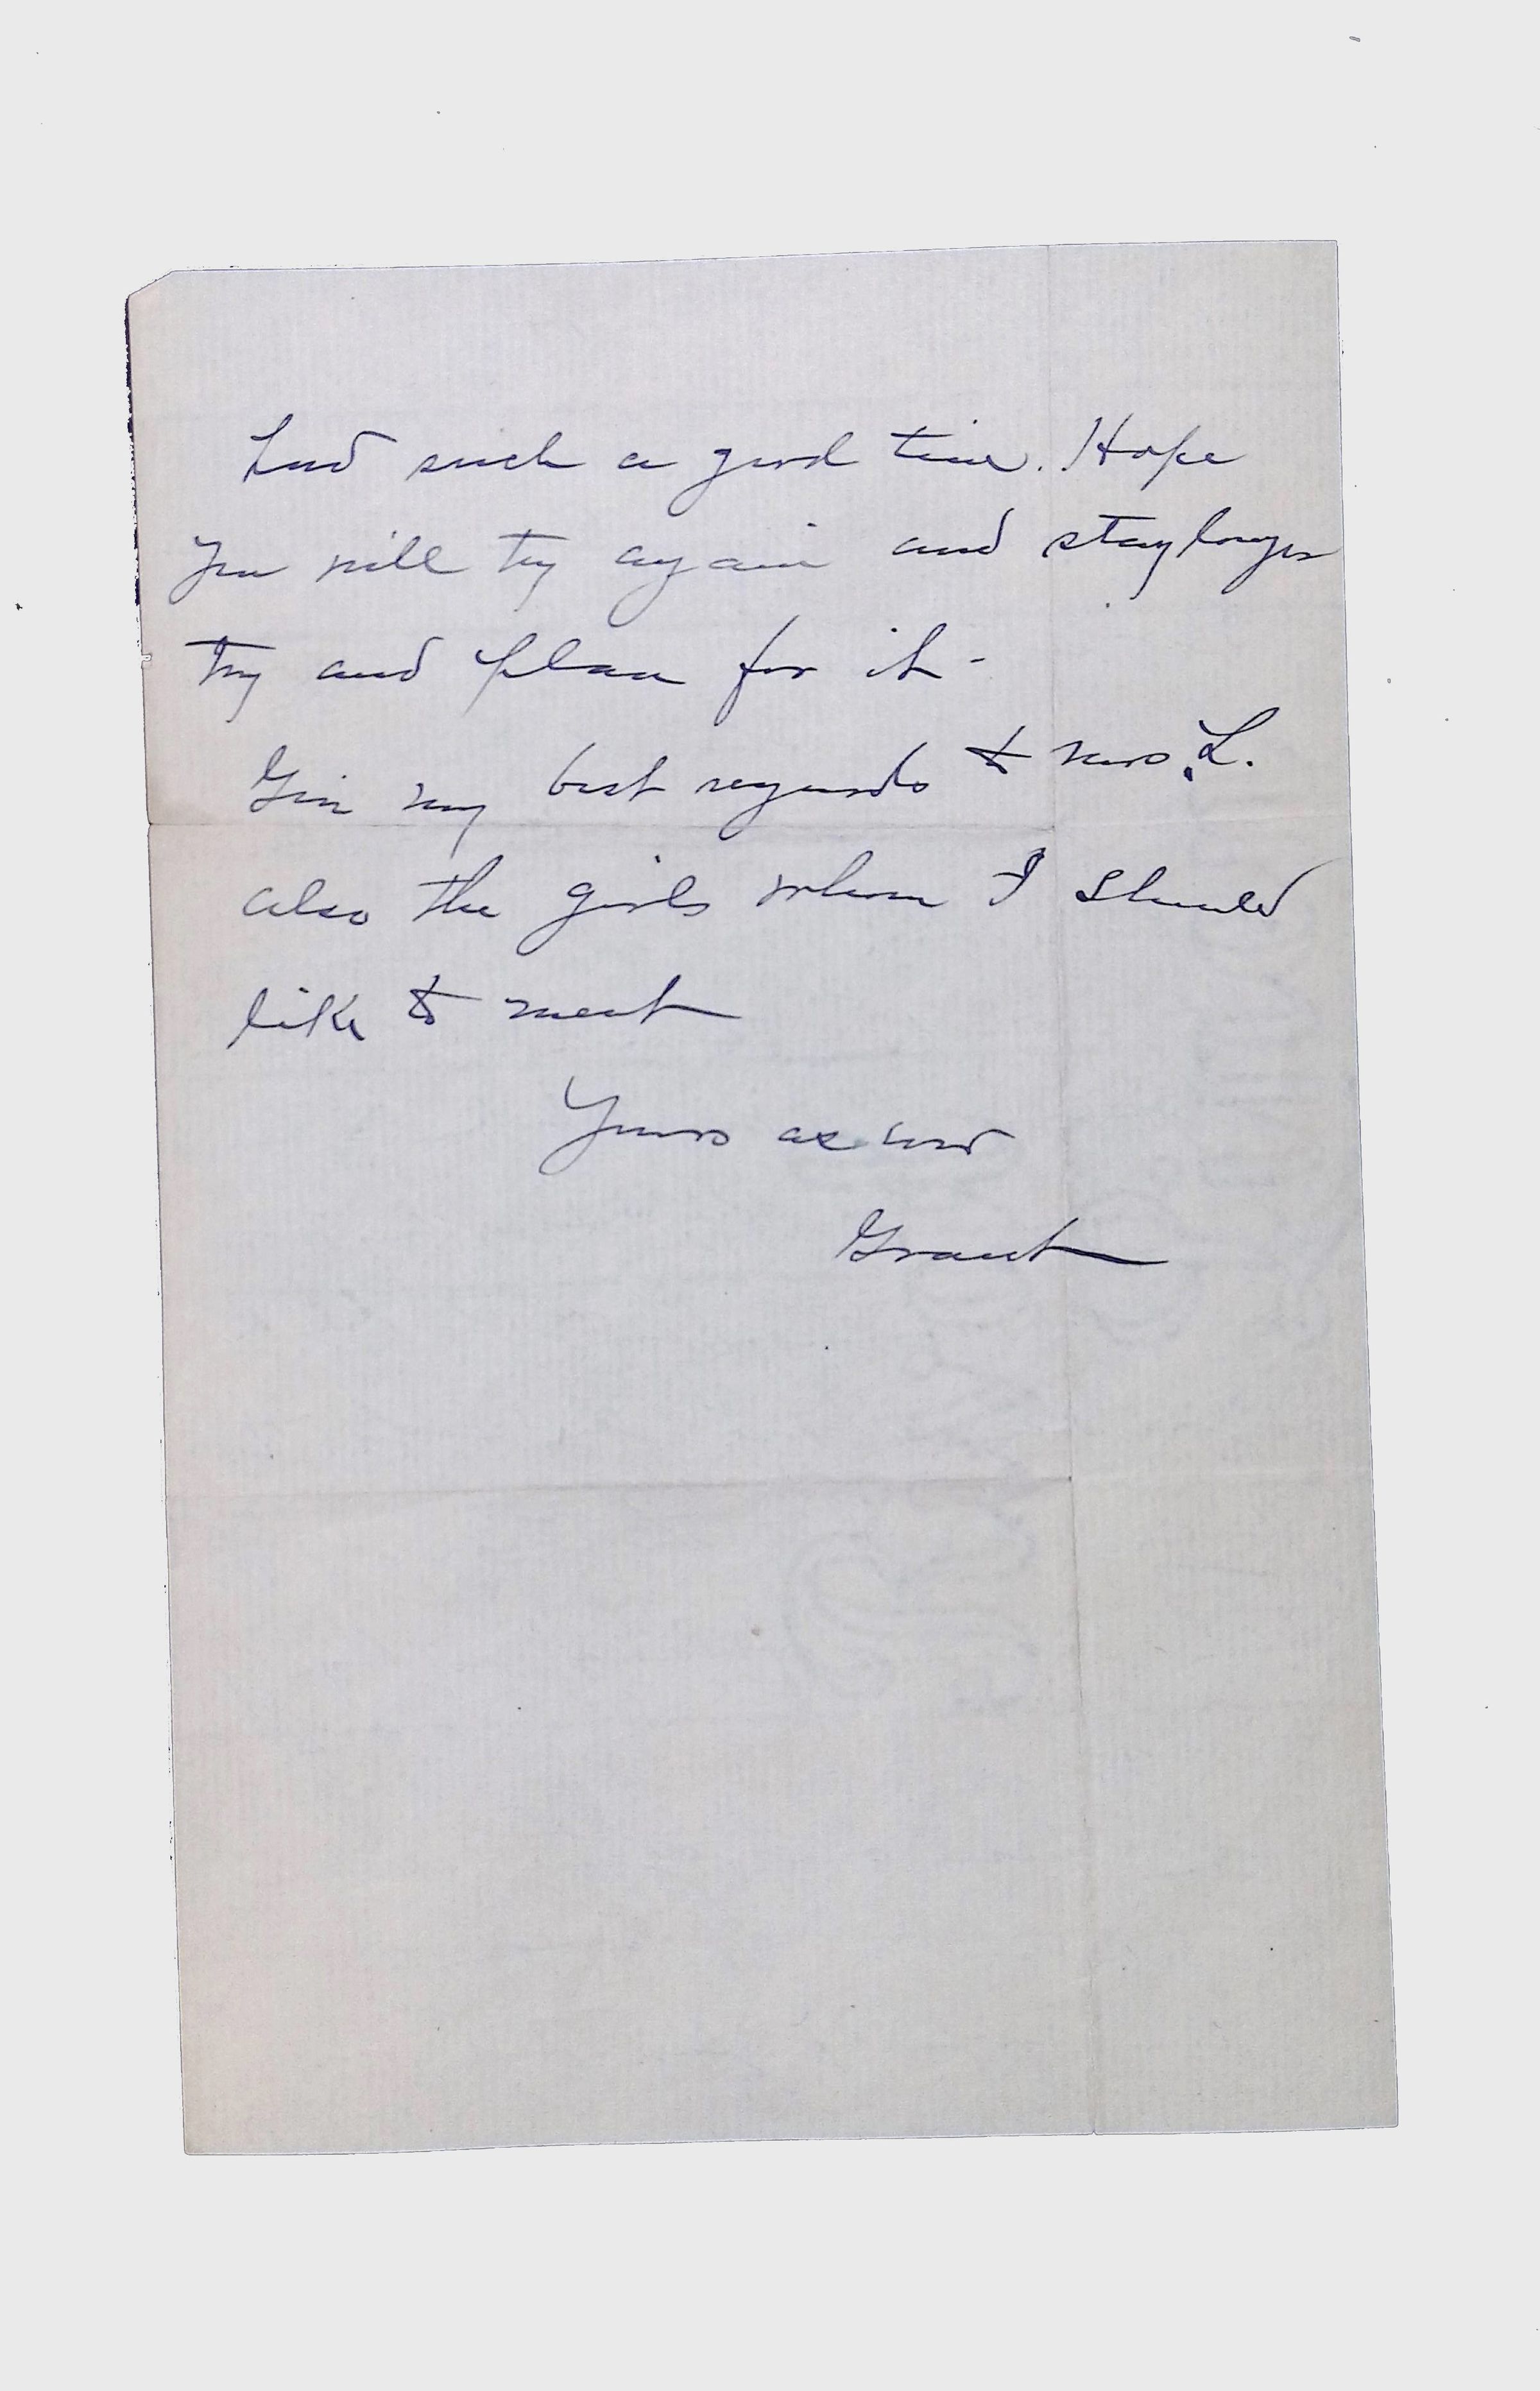 had such a good time. Hope
you will try again and stay longer
try and plan for it -
Give my best regards to Mrs. L.
also the girls whom I should
like to meet
Yours as ever
Grant